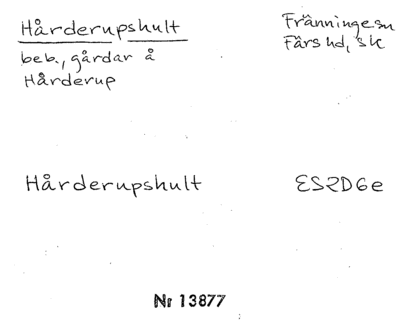 Hårderupshult
beb., gårdar å
Hårderup
Fränninge sn
Färs hd, Sk
Hårderupshult
ES2D6e
Nr 13877